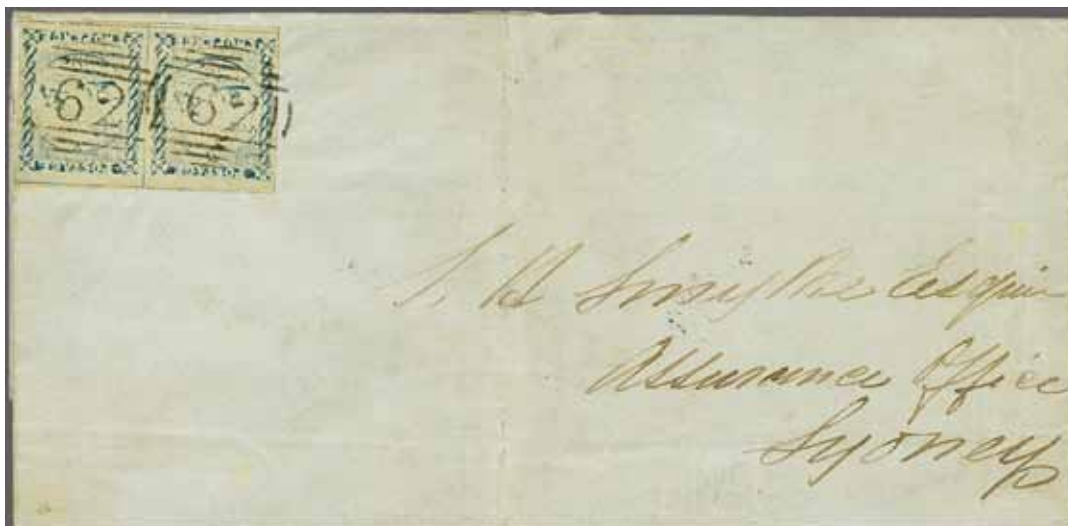 62 62
S. H. Smythe Esquire
Assurance Office
Sydney